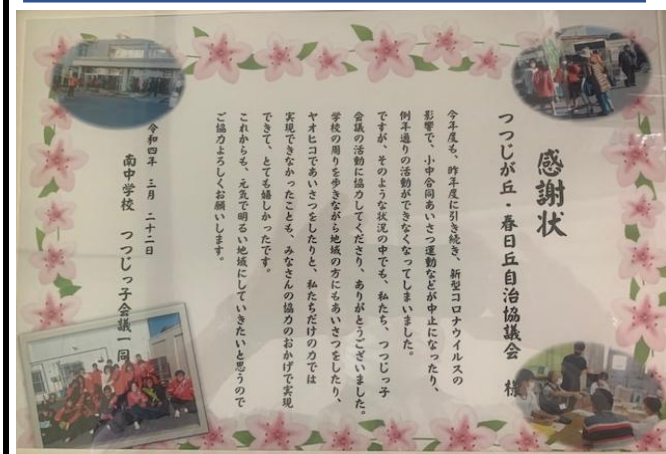 感謝状
つつじが丘・春日丘自治協議会 様
今年度も、昨年度に引き続き、新型コロナウイルスの
影響で、小中合同あいさつ運動などが中止になったり、
例年通りの活動ができなくなってしまいました。
ですが、そのような状況の中でも、私たち、つつじっ子
会議の活動に協力してくださり、ありがとうございました。
学校の周りを歩きながら地域の方にもあいさつをしたり、
ヤオヒコであいさつをしたりと、私たちだけの力では
実現できなかったことも、みなさんの協力のおかげで実現
できて、とても嬉しかったです。
これからも、元気で明るい地域にしていきたいと思うので
ご協力よろしくお願いします。
令和四年 三月 二十二日
南中学校 つつじっ子会議一同